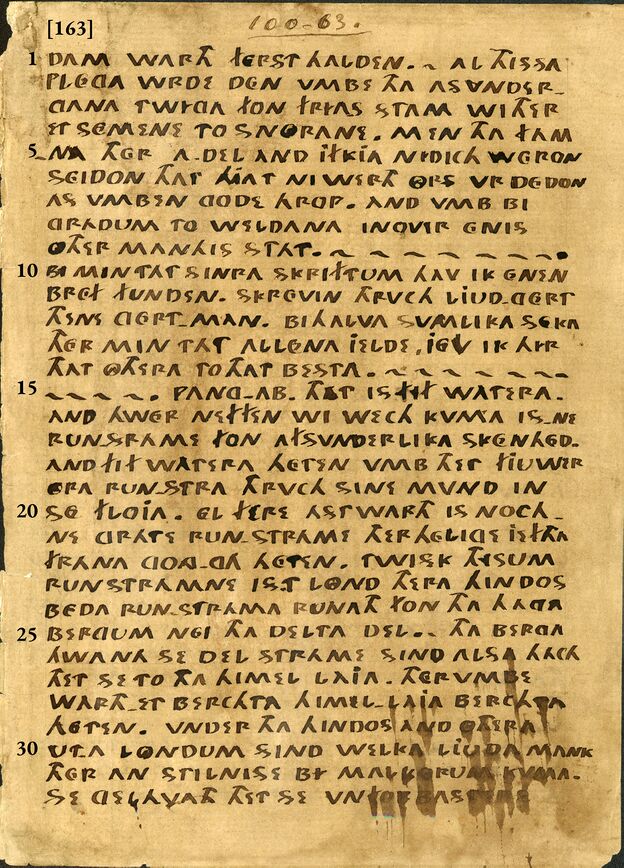 [163]
100-63.
1 DAM WARTH FERST HALDEN. ~ AL THISSA
PLEGA WRDE DEN VMBE THA ASVNDER_
GANA TWIGA FON FRYAS STAM WITHER
ET SEMENE TO SNORANE. MEN THA FAM
5 NA THER A_DEL AND IFKJA NIDICH WERON
SEIDON THAT HJAT NI WERTH OFS VR DEDON
AS VMBEN GODE HROP. AND VMB BI
GRADUM TO WELDANA IN OVIR ENIS
OTHER MANNIS STAT. ~ ~ ~ ~ ~ ~ ~ .
10 BI MIN TAT SINRA SKRIFTUM HAV IK ENEN
BREF FUNDEN. SKREVIN THRVCH LIUD_GERT
THENE GERT_MAN. BIHALVA SVMLIKA SEKA
THER MIN TAT ALLENA JELDE, JEV IK HIR
THAT OTHERA TO THAT BESTA. ~ ~ ~ ~ ~ ~
15 ~ ~ ~ ~ . PANG_AB. THET IS FIF WATERA.
AND HWER NEFFEN WI WECH KVMA IS_NE
RUNSTRAME FON AFSVNDERLIKA SKENHED.
AND FIF WATERA HETEN VMB THET FIUWER
ORA RUN_STRA THRVCH SINE MVND IN
20 SE FLOJA. EL FERE ASTWARTH IS NOCH_
NE GRATE RUN_STRAME THER HELIGE JEFTHA
FRANA GONG_GA HETEN. TWISK THISUM
RUNSTRAMNE IS.T LOND THERA HINDOS
BEDA RUN_STRAMA RUNATH FON THA HAGA
25 BERGUM NEI THA DELTA DEL.. THA BERGA
HWANA SE DEL STRAME SIND ALSA HACH
THET SE TO THA HIMEL LAJA. THERVMBE
WARTH_ET BERCHTA HIMEL_LAJA BERCHTA
HETEN. VNDER THA HINDOS AND OTHERA
30 UT.A LONDUM SIND WELKA LIUDA MANK
THER AN STILNISE BY MALKORUM KVMA.
SE GELAVATH THET SE